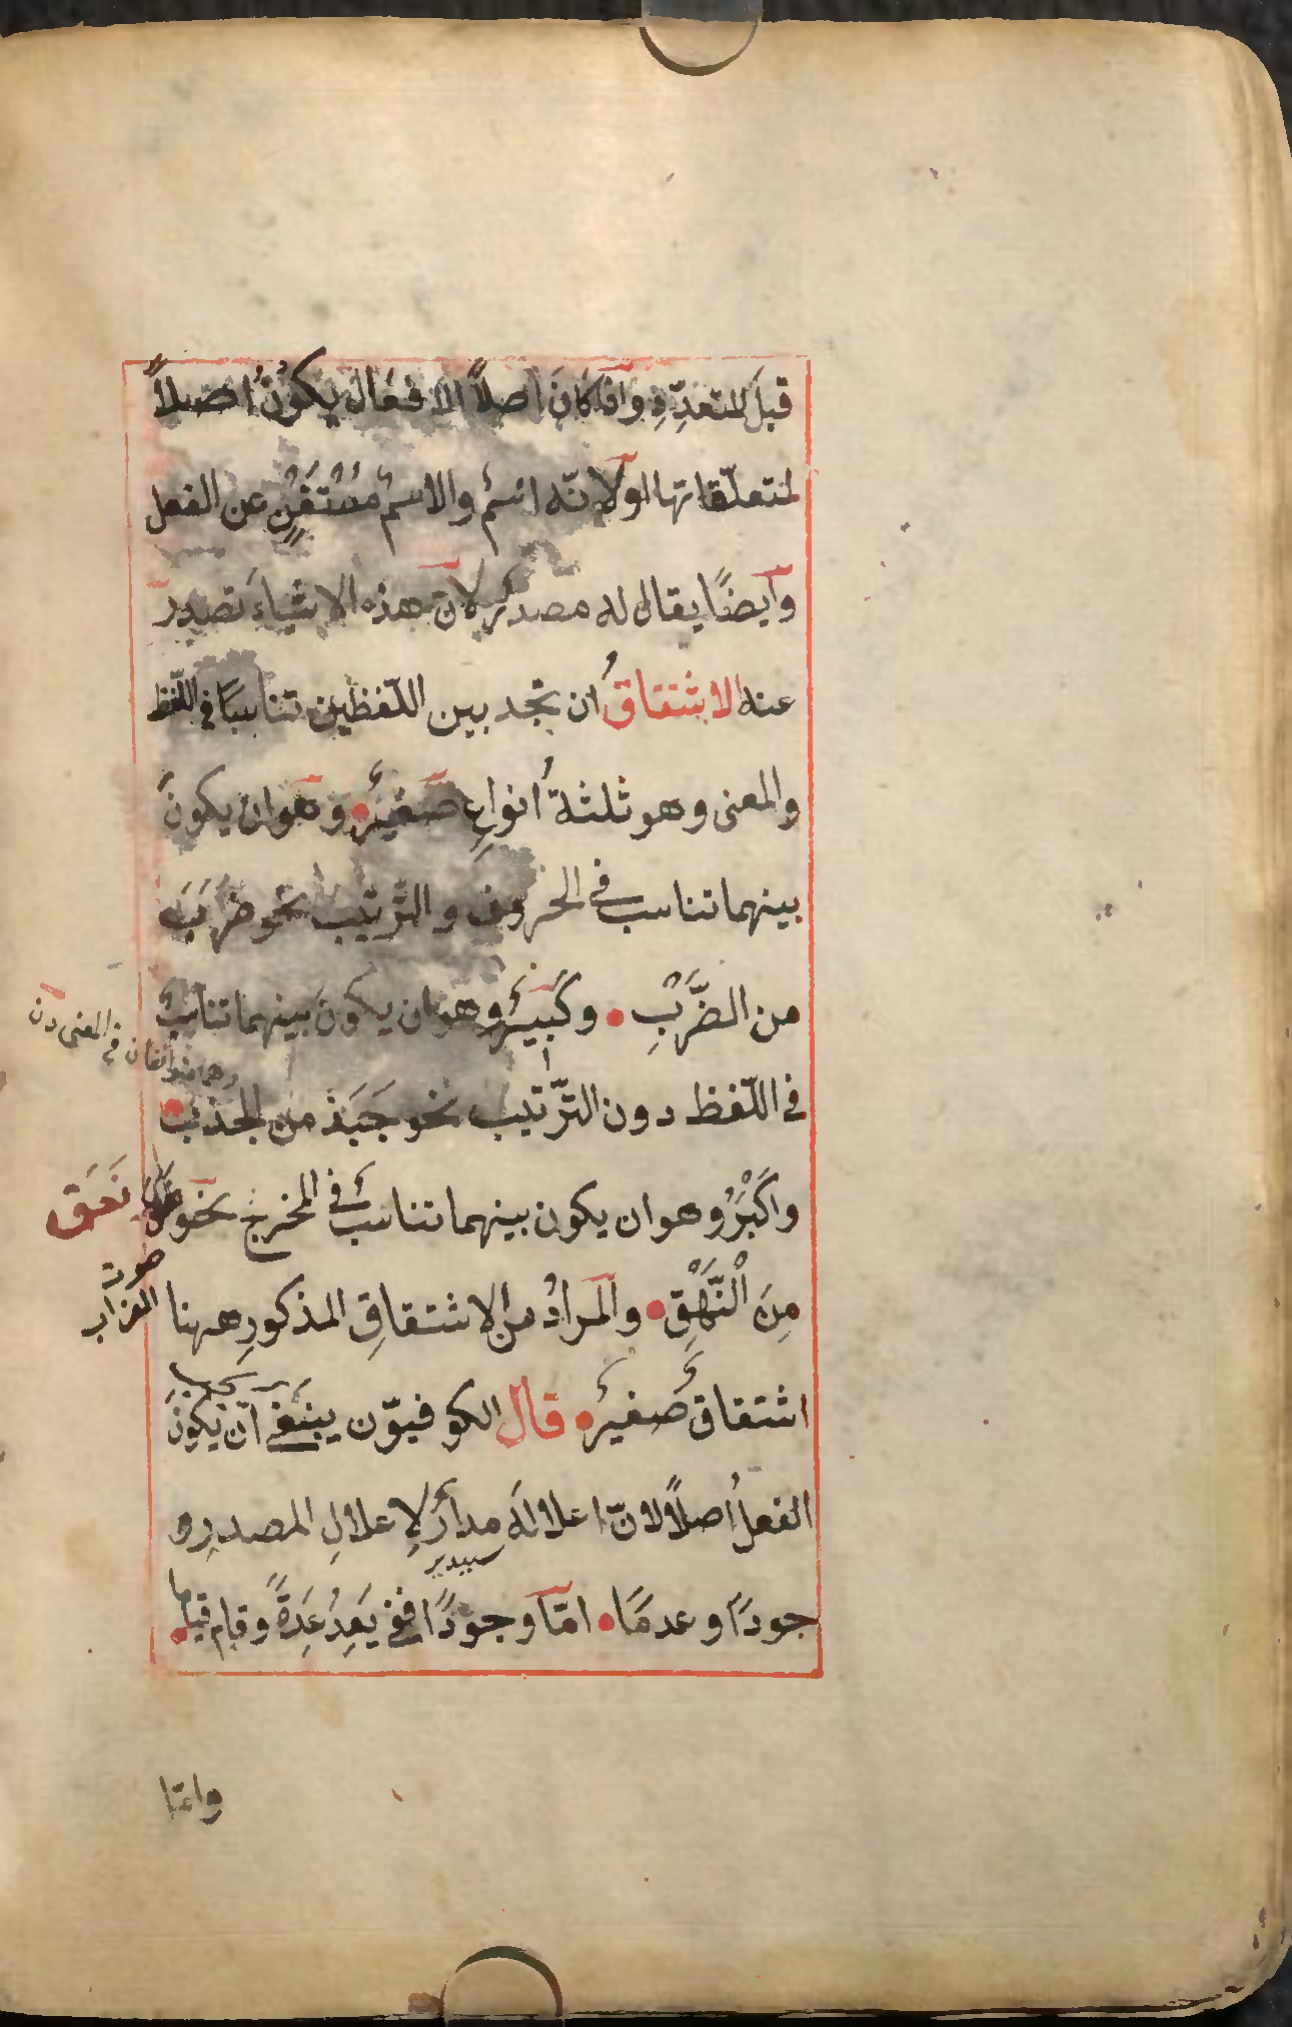 قبلَ المتعدِّدِ واذا كانَ اصلاً الافعال يكونُ اصلاً
لمتعلّقاتها اولانّه اسمٌ والاسمُ مستغنٍ عن الفعل
وايضًا يقال له مصدرٌ لانّ هذه الاشياءَ تصدر
عنه الاشتقاقُ ان تجد بين اللّفظين تناسبًا فى اللّفظ
والمعنى وهو ثلثةُ انواعٍ صغيرٌ وهو ان يكونَ
بينهما تناسب فى الحروف والتّرتيب نحو ضَرَبَ
من الضَّرْبِ وكَبيرٌ وهو ان يكونَ بينهما تناسبٌ
فى اللّفظ دون التّرتيب نحو جَبَذَ من الجذب
واَكْبَرُ وهو ان يكون بينهما تناسبٌ فى المخرج نحو نَعَق
مِنَ النَّهْقِ والمرادُ من الاشتقاقِ المذكورِ ههنا
اشتقاقٌ صغيرٌ قال الكوفيّون ينبغى ان يكونَ
الفعلُ اصلاً لانّ اعلالَهَ مدارٌ لاِعلالِ المصدرِ و
جودًا وعدمًا امّا وجودًا ففى يَعِدُ عِدَةً وقام قياما
وامّا
وهما متوافقان فى المعنى دون
صوت
الغراب
يجب
سببدر